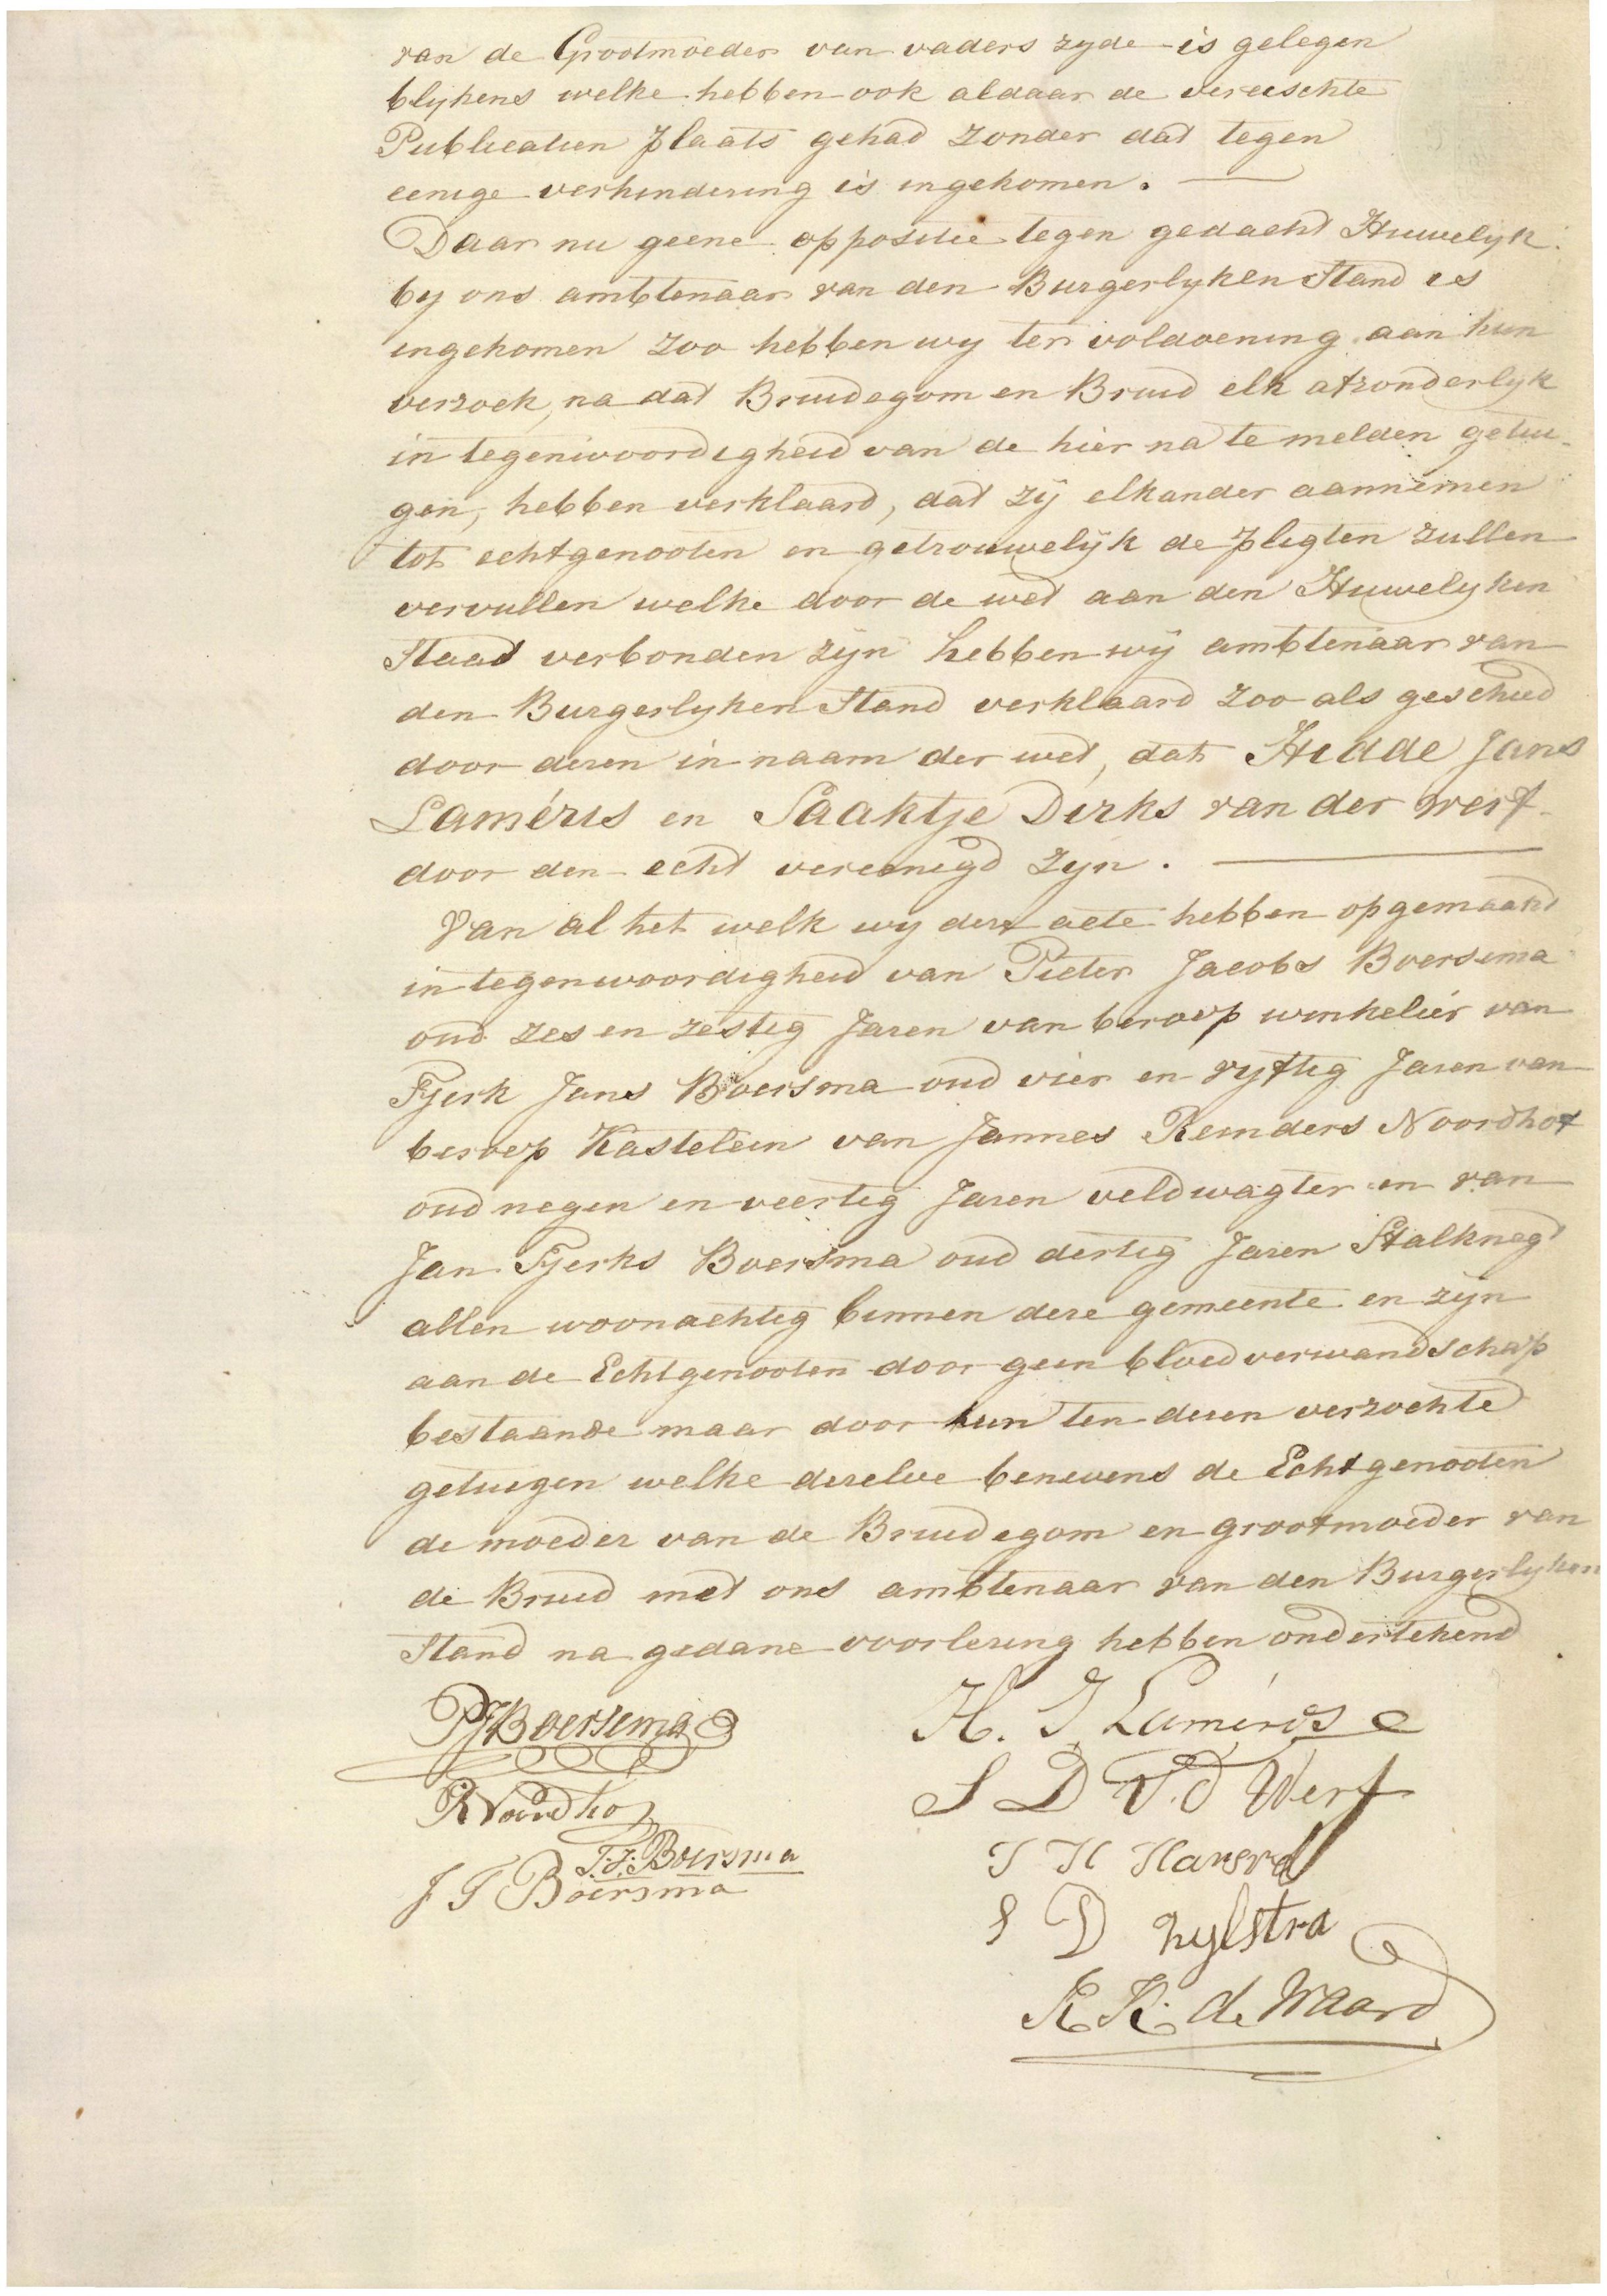 van de Grootmoeder van vaders zyde is gelegen
blykens welke hebben ook aldaar de vereischte
Publicatien plaats gehad zonder dat tegen
eenige verhindering is ingekomen. —
Daar nu geene oppositie tegen gedacht Huwelyk
by ons ambtenaar van den Burgerlyken Stand is
ingekomen zoo hebben wy ter voldoening aan hun
verzoek, na dat Bruidegom en Bruid elk afzonderlyk
in tegenwoordigheid van de hier na te melden getui-
gen, hebben verklaard, dat zÿ elkander aannemen
tot echtgenooten en getrouwelÿk de pligten zullen
vervullen welke door de wet aan den Huwelyken
Staat verbonden zÿn hebben wÿ ambtenaar van
den Burgerlyken Stand verklaard zoo als geschied
door dezen in naam der wet, dat Hidde Jans
Laméris en Saaktje Dirks van der werf
door den echt vereenigd zyn. —
Van al het welk wy deze acte hebben opgemaakt
in tegenwoordigheid van Pieter Jacobs Boersema
oud zes en zestig Jaren van beroep winkelier van
Tjerk Jans Boersma oud vier en vyftig Jaren van
beroep Kastelein van Jannes Reinders Noordhof
oud negen en veertig Jaren veldwagter en van
Jan Tjerks Boersma oud dertig Jaren Stalknegt
allen woonachtig binnen deze gemeente en zÿn
aan de Echtgenooten door geen bloedverwandschap
bestaande maar door hun ten dezen verzochte
getuigen welke dezelve benevens de Echtgenooten
de moeder van de Bruidegom en grootmoeder van
de Bruid met ons ambtenaar van den Burgerlyken
Stand na gedane voorlezing hebben ondertekend
PJBoersema H. J. Laméris
S D V.d Werf
R Noordhof
T.J. Boersma T H
J T Boersma S D zylstra
K. K. de Waard